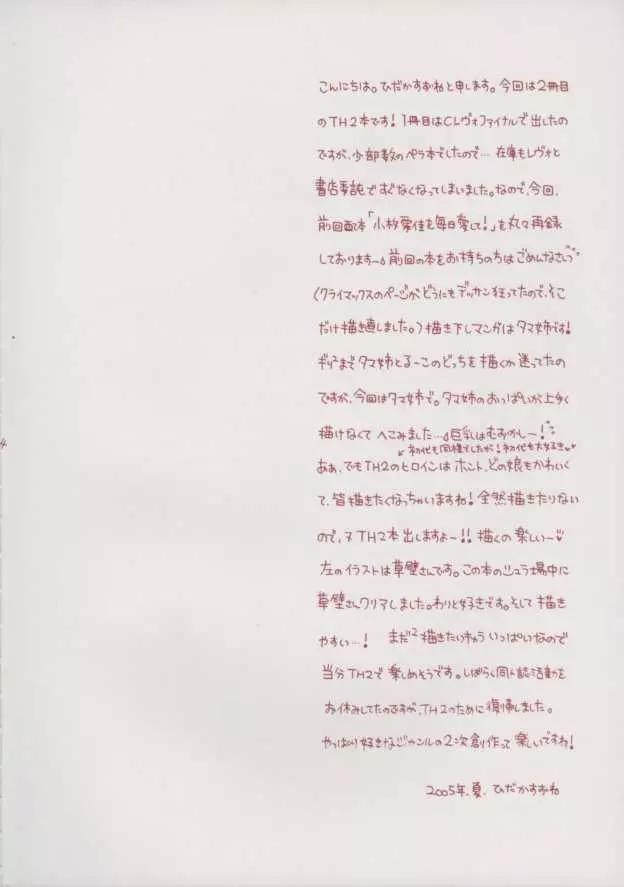 こんにちは。ひだかすずねと申します。今回は2冊目
のTH2本です!1冊目はCレヴォファイナルで出したの
ですが、少部数のペラ本でしたので…在庫もレヴォと
書店委託ですぐなくなってしまいました。なので、今回、
前回配本「小牧愛佳を毎日愛して!」を丸々再録
しております〜。前回の本をお持ちの方はごめんなさいっ
(クライマックスのページがどうにもデッサン狂ってたので、そこ
だけ描き直しました。)描き下しマンガはタマ姉です!
ギリ²までタマ姉とるーこのどっちを描くか迷ってたの
ですが、今回はタマ姉で。タマ姉のおっぱいが上手く
描けなくてへこみました…。巨乳はむずかし〜!
初代も同様でしたが!初代も大好き♥
ああ、でもTH2のヒロインはホント、どの娘もかわいく
て、皆描きたくなっちゃいますね!全然描きたりない
ので、又TH2本出しますよ〜!!描くの楽しい〜♥
左のイラストは草壁さんです。この本のシュラ場中に
草壁さんクリアしました。わりと好きです。そして描き
やすい…!まだ²描きたいキャラいっぱいなので
当分TH2で楽しめそうです。しばらく同人誌活動を
お休みしてたのですが、TH2のために復帰しました。
やっぱり好きなジャンルの2次創作って楽しいですね!
2005年、夏、ひだかすずね